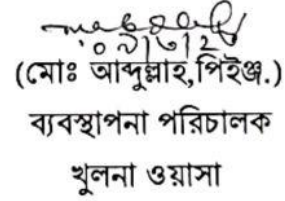 (মোঃ আব্দুল্লাহ,পিইঞ্জ.)
ব্যবস্থাপনা পরিচালক
খুলনা ওয়াসা